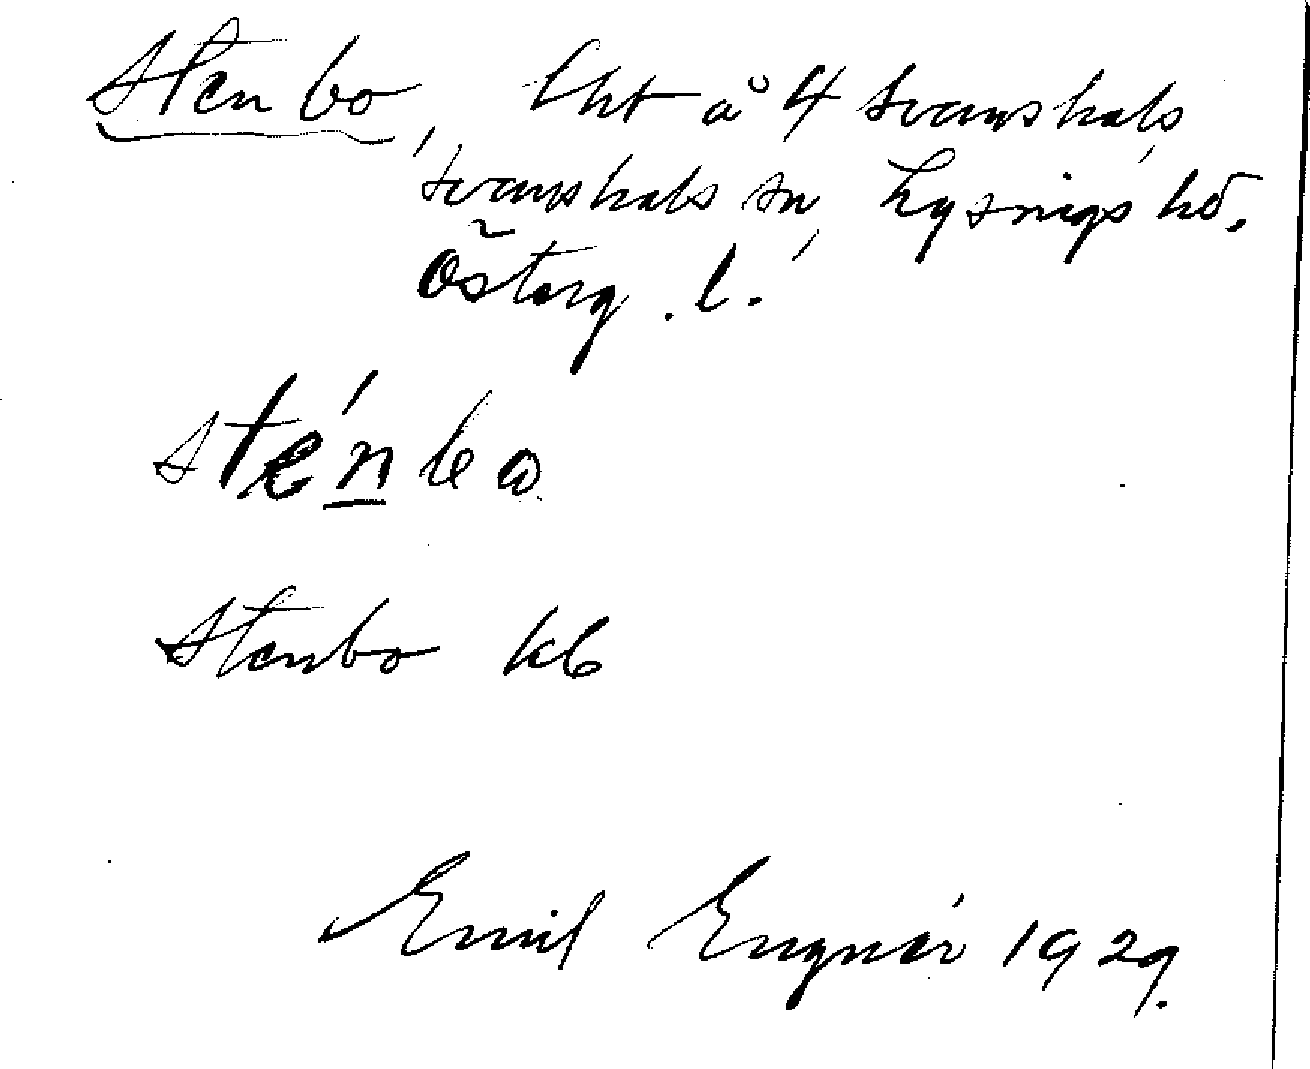 Stenbo, lht å 4 Svanshals,
Svanshals sn, Lysings hd.
Österg. l.
sténbo
Stenbo kb
Emil Engnér 1929.